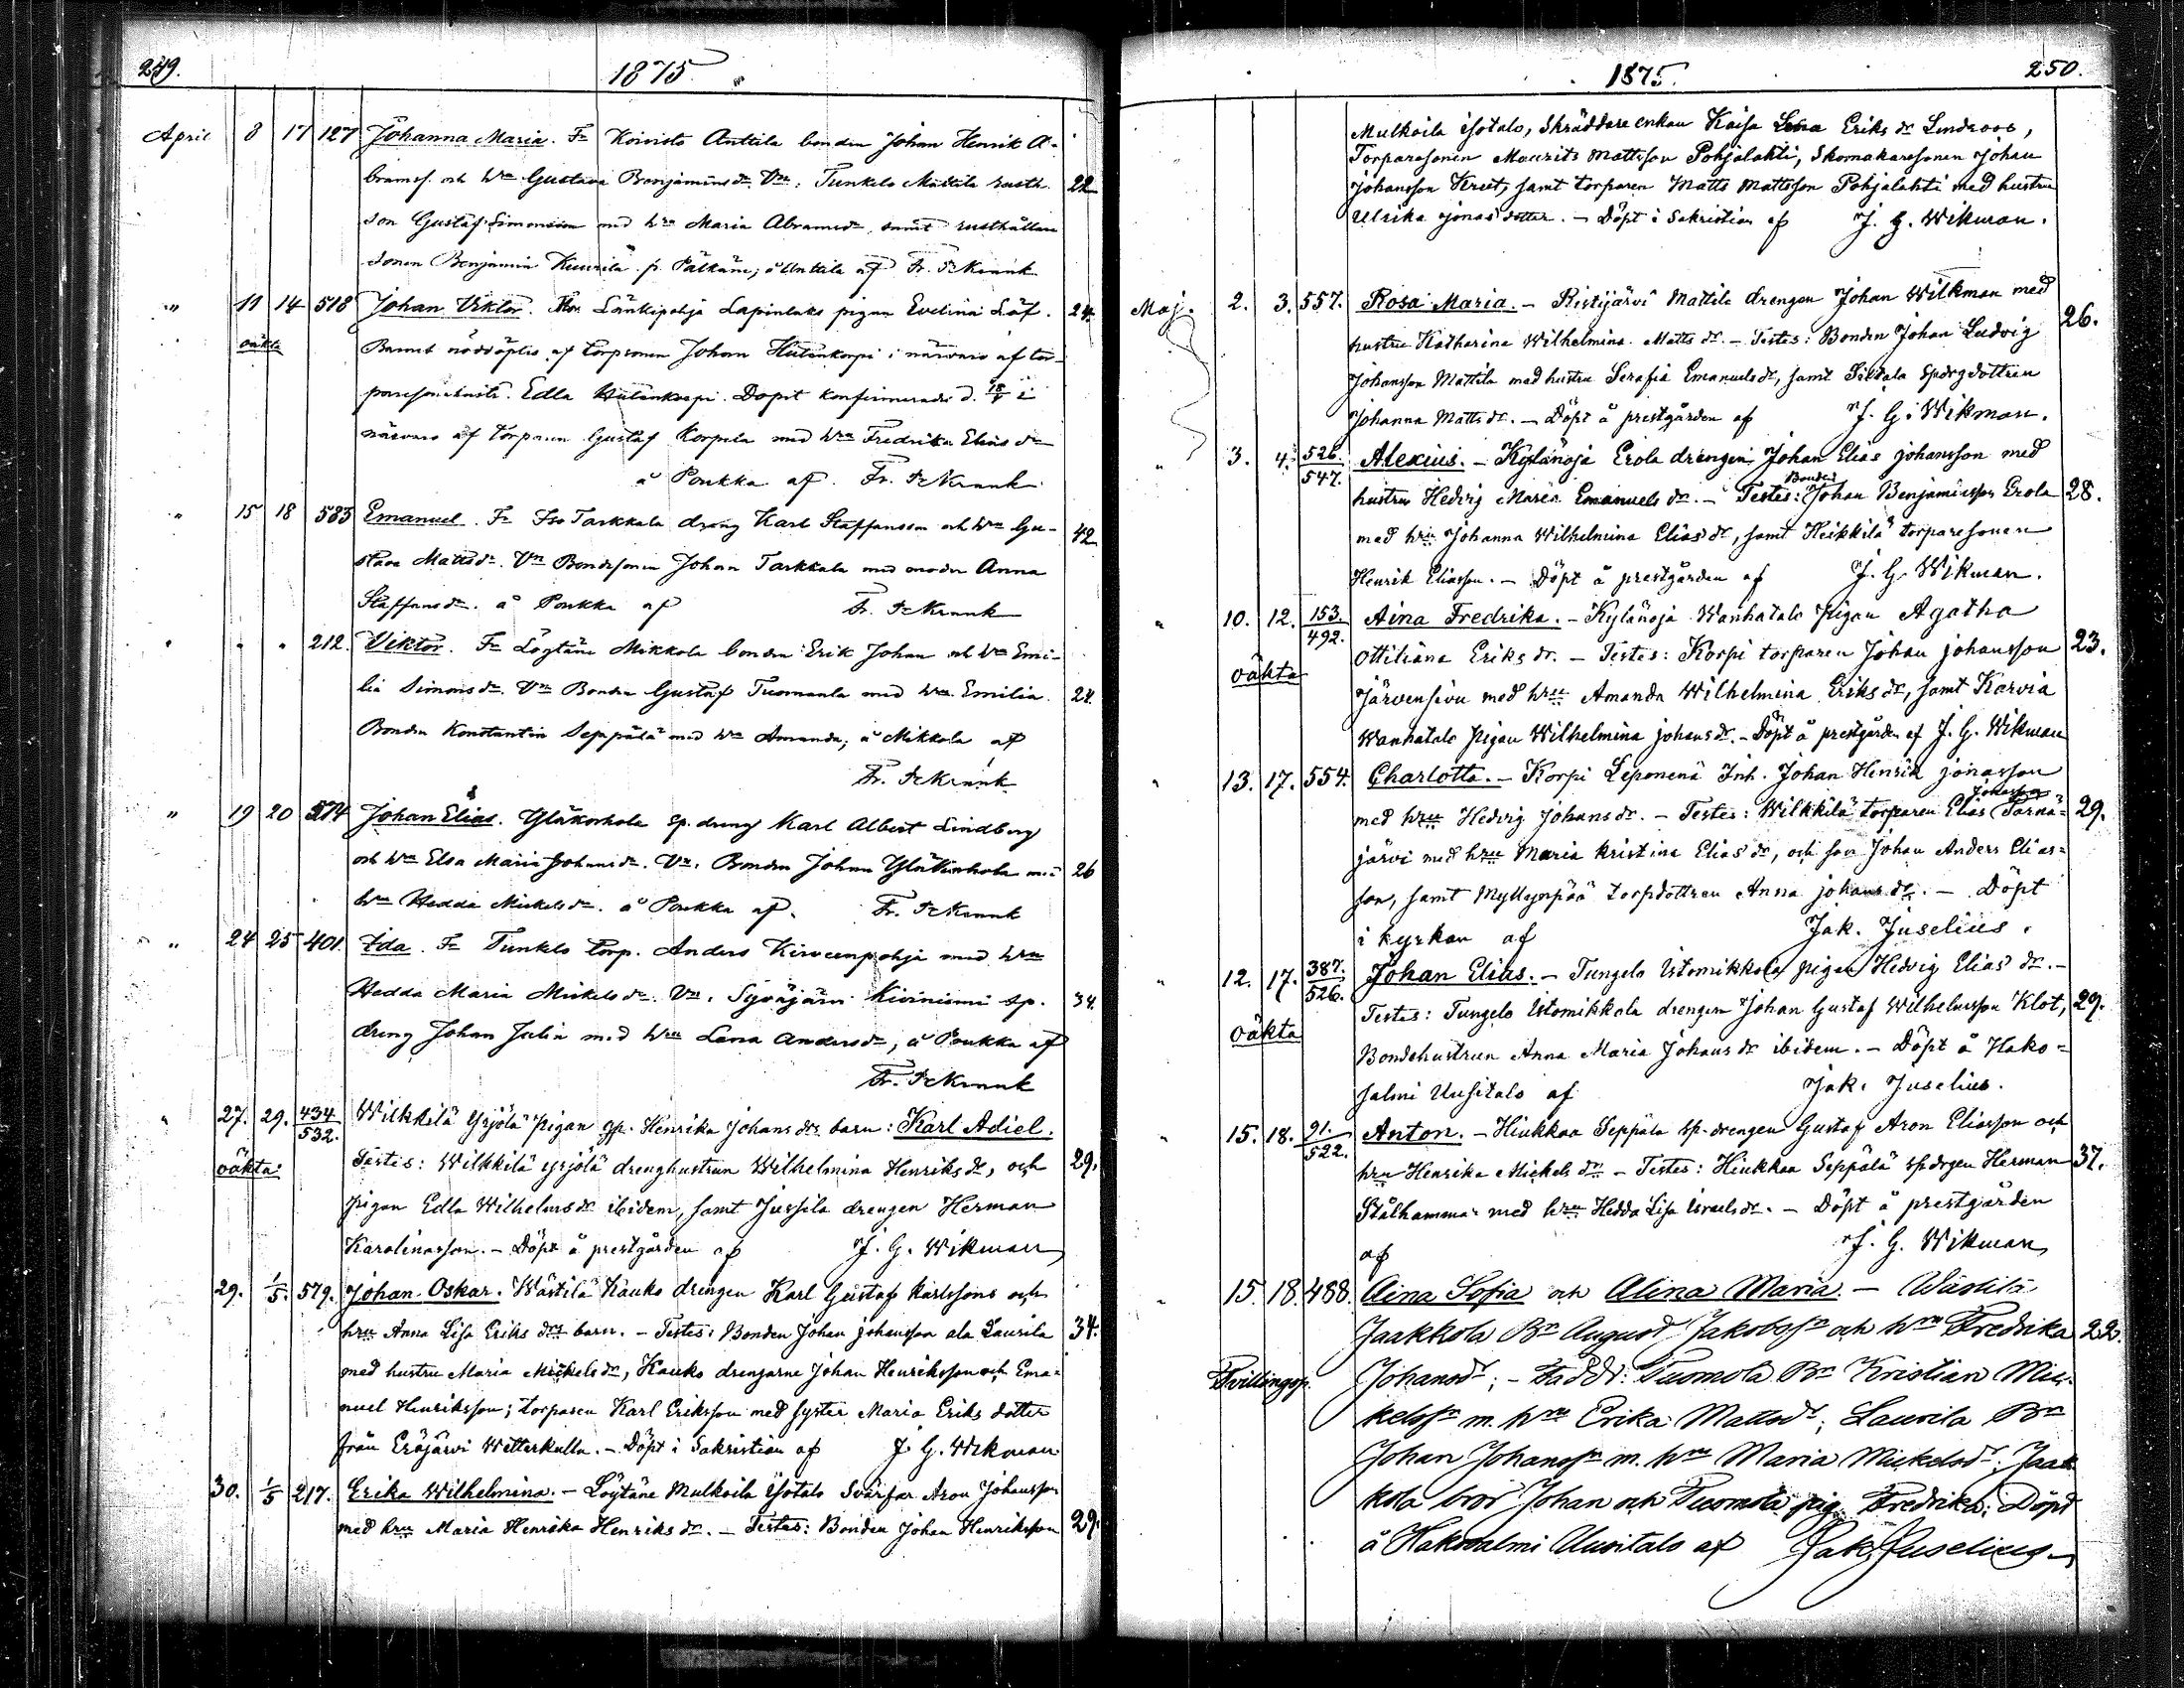 249.
1875.
April 8 17 127 Johanna Maria. Fr Koivisto Anttila bonden Johan Henrik A-
bramss. och hru Gustava Benjaminsdr. Vn: Tunkelo Mattila rusth. 22
son Gustaf Simonsson med hru Maria Abramsdr, samt rusthållare
sonen Benjamin Kuurila fr. Pälkäne; å Anttila af Fr. Fr Krank
" 11 14 518 Johan Viktor. Mor. Länkipohja Lapinlaks pigan Evelina Löf. 24.
oäkta Barnet nöddöptes af torpsonen Johan Hietankorpi i närvaro af tor-
paresonehustr. Edla Hietankorpi. Dopet konfirmerades d. 18/4 i
närvaro af torparen Gustaf Korpela med hru Fredrika Elias dr
å Poukka af Fr. Fr Krank
" 15 18 583 Emanuel. Fr Iso Tarkkala dräng Karl Staffansson och hru Gu-
stava Mattsdr. Vn Bondesonen Johan Tarkkala med moder Anna 42
Staffansdr. å Poukka af Fr. Fr Krank
" " " 212. Viktor. Fr Löytäne Mikkola bonden Erik Johan och hru Emi-
lia Simonsdr. Vn Bonden Gustaf Tuomaala med hru Emilia. 24.
Bonden Konstantin Seppälä med hru Amanda; å Mikkola af
Fr. Fr Krank
" 19 20 574 Johan Elias. Yläkorkola sp. dreng Karl Albert Lindberg
och hru Elsa Maria Johansdr. Vn. Bonden Johan Yläkorkola med 26
hru Hedda Mickelsdr. å Poukka af. Fr. Fr Krank
" 24 25 401. Ida. Fr Tunkelo torp. Anders Kirveenpohja med hru
Hedda Maria Mickelsdr. Vn. Syväjärvi Kiviniemi sp. 34.
dreng Johan Julin med hru Lena Andersdr, å Poukka af
Fr. Fr Krank
" 27. 29. 434/532. Wilkkilä Yrjölä pigan gp. Henrika Johans drs barn: Karl Adiel.
oäkta Testes: Wilkkilä Yrjölä drenghustrun Wilhelmina Henriks dr, och 29.
pigan Edla Wilhelmsdr ibidem, samt Jussila drengen Herman
Karolinasson. - Döpt å prestgården af J. G. Wikman
29. 1/5. 579. Johan Oskar. Wästilä Kauko drengen Karl Gustaf Karlssons och
hru Anna Lisa Eriks drs barn. - Testes: Bonden Johan Johansson ala Laurila 34.
med hustru Maria Mickelsdr, Kauko drengarne Johan Henriksson och Ema-
nuel Henriksson; torparen Karl Eriksson med syster Maria Eriks dotter
från Eräjärvi Wetterkulla. - Döpt i Sakristian af J. G. Wikman
30. 1/5 217. Erika Wilhelmina. - Löytäne Mulkoila Isotalo Svärfar Aron Johansson
med hru Maria Henrika Henriks dr. - Testes: Bonden Johan Henriksson 29.
1875.
250.
Mulkoila Isotalo, Skräddare enkan Kaisa Lena Eriks dr Lindroos,
Torparesonen Maurits Mattsson Pohjalahti, Skomakaresonen Johan
Johansson Kreet, samt torparen Matts Mattsson Pohjalahti med hustru
Ulrika Jonas dotter. - Döpt i Sakristian af J. G. Wikman.
Maj. 2. 3. 557. Rosa Maria. - Ristijärvi Mattila drengen Johan Wilkman med
hustru Katharina Wilhelmina Matts dr. - Testes: Bonden Johan Ludvig 26.
Johansson Mattila med hustru Serafia Emanuels dr, samt Siltala spdrgdottren
Johanna Matts dr. - Döpt å prestgården af J. G. Wikman.
" 3. 4. 526./547. Alexius. - Kylänoja Erola drengen Johan Elias Johansson med
hustru Hedvig Maria Emanuels dr. - Testes: Bonden Johan Benjaminsson Erola 28.
med hru Johanna Wilhelmina Elias dr, samt Heikkilä torparesonen
Henrik Eliasson. - Döpt å prestgården af J. G. Wikman.
" 10. 12. 153./492. Aina Fredrika. - Kylänoja Wanhatalo pigan Agatha
oäkta Ottiliana Eriks dr. - Testes: Korpi torparen Johan Johansson 23.
Järvensivu med hru Amanda Wilhelmina Eriks dr, samt Karvia
Wanhatalo pigan Wilhelmina Johans dr. - Döpt å prestgården af J. G. Wikman
" 13. 17. 554. Charlotta. - Korpi Leponenä Inh. Johan Henrik Jonasson
med hru Hedvig Johans dr. - Testes: Wilkkilä torparen Elias Johansson Pärnä- 29.
järvi med hru Maria Kristina Elias dr, och son Johan Anders Elias-
son, samt Myllynpää torpdottren Anna Johans dr. - Döpt
i kyrkan af Jak. Juselius.
" 12. 17. 387./526. Johan Elias. - Tungelo Ustomikkola pigan Hedvig Elias dr. -
oäkta Testes: Tungelo Ustomikkola drengen Johan Gustaf Wilhelmsson Klot, 29.
Bondehustrun Anna Maria Johans dr ibidem. - Döpt å Hako-
salmi Uusitalo af Jak. Juselius.
" 15. 18. 91./522. Anton. - Hiukkaa Seppälä sp. drengen Gustaf Aron Eliasson och
hru Henrika Mickels dr - Testes: Hiukkaa Seppälä sp.drgen Herman 37.
Stålhammar med hru Hedda Lisa Israelsdr. - Döpt å prestgården
af J. G. Wikman
" 15. 18. 488. Aina Sofia och Alina Maria. - Wästilä
Jaakkola Bn August Jakobssn och hru Fredrika 22.
Tvillingsp. Johansdr; - Fadd: Tuomola Bn Kristian Mic-
kelssn m. hru Erika Mattsdr; Laurila Bn
Johan Johanssn m. hru Maria Mickelsdr, Jaak
kola bror Johan och Tuomola pig. Fredrika; Döpt
å Hakosalmi Uusitalo af Jak. Juselius